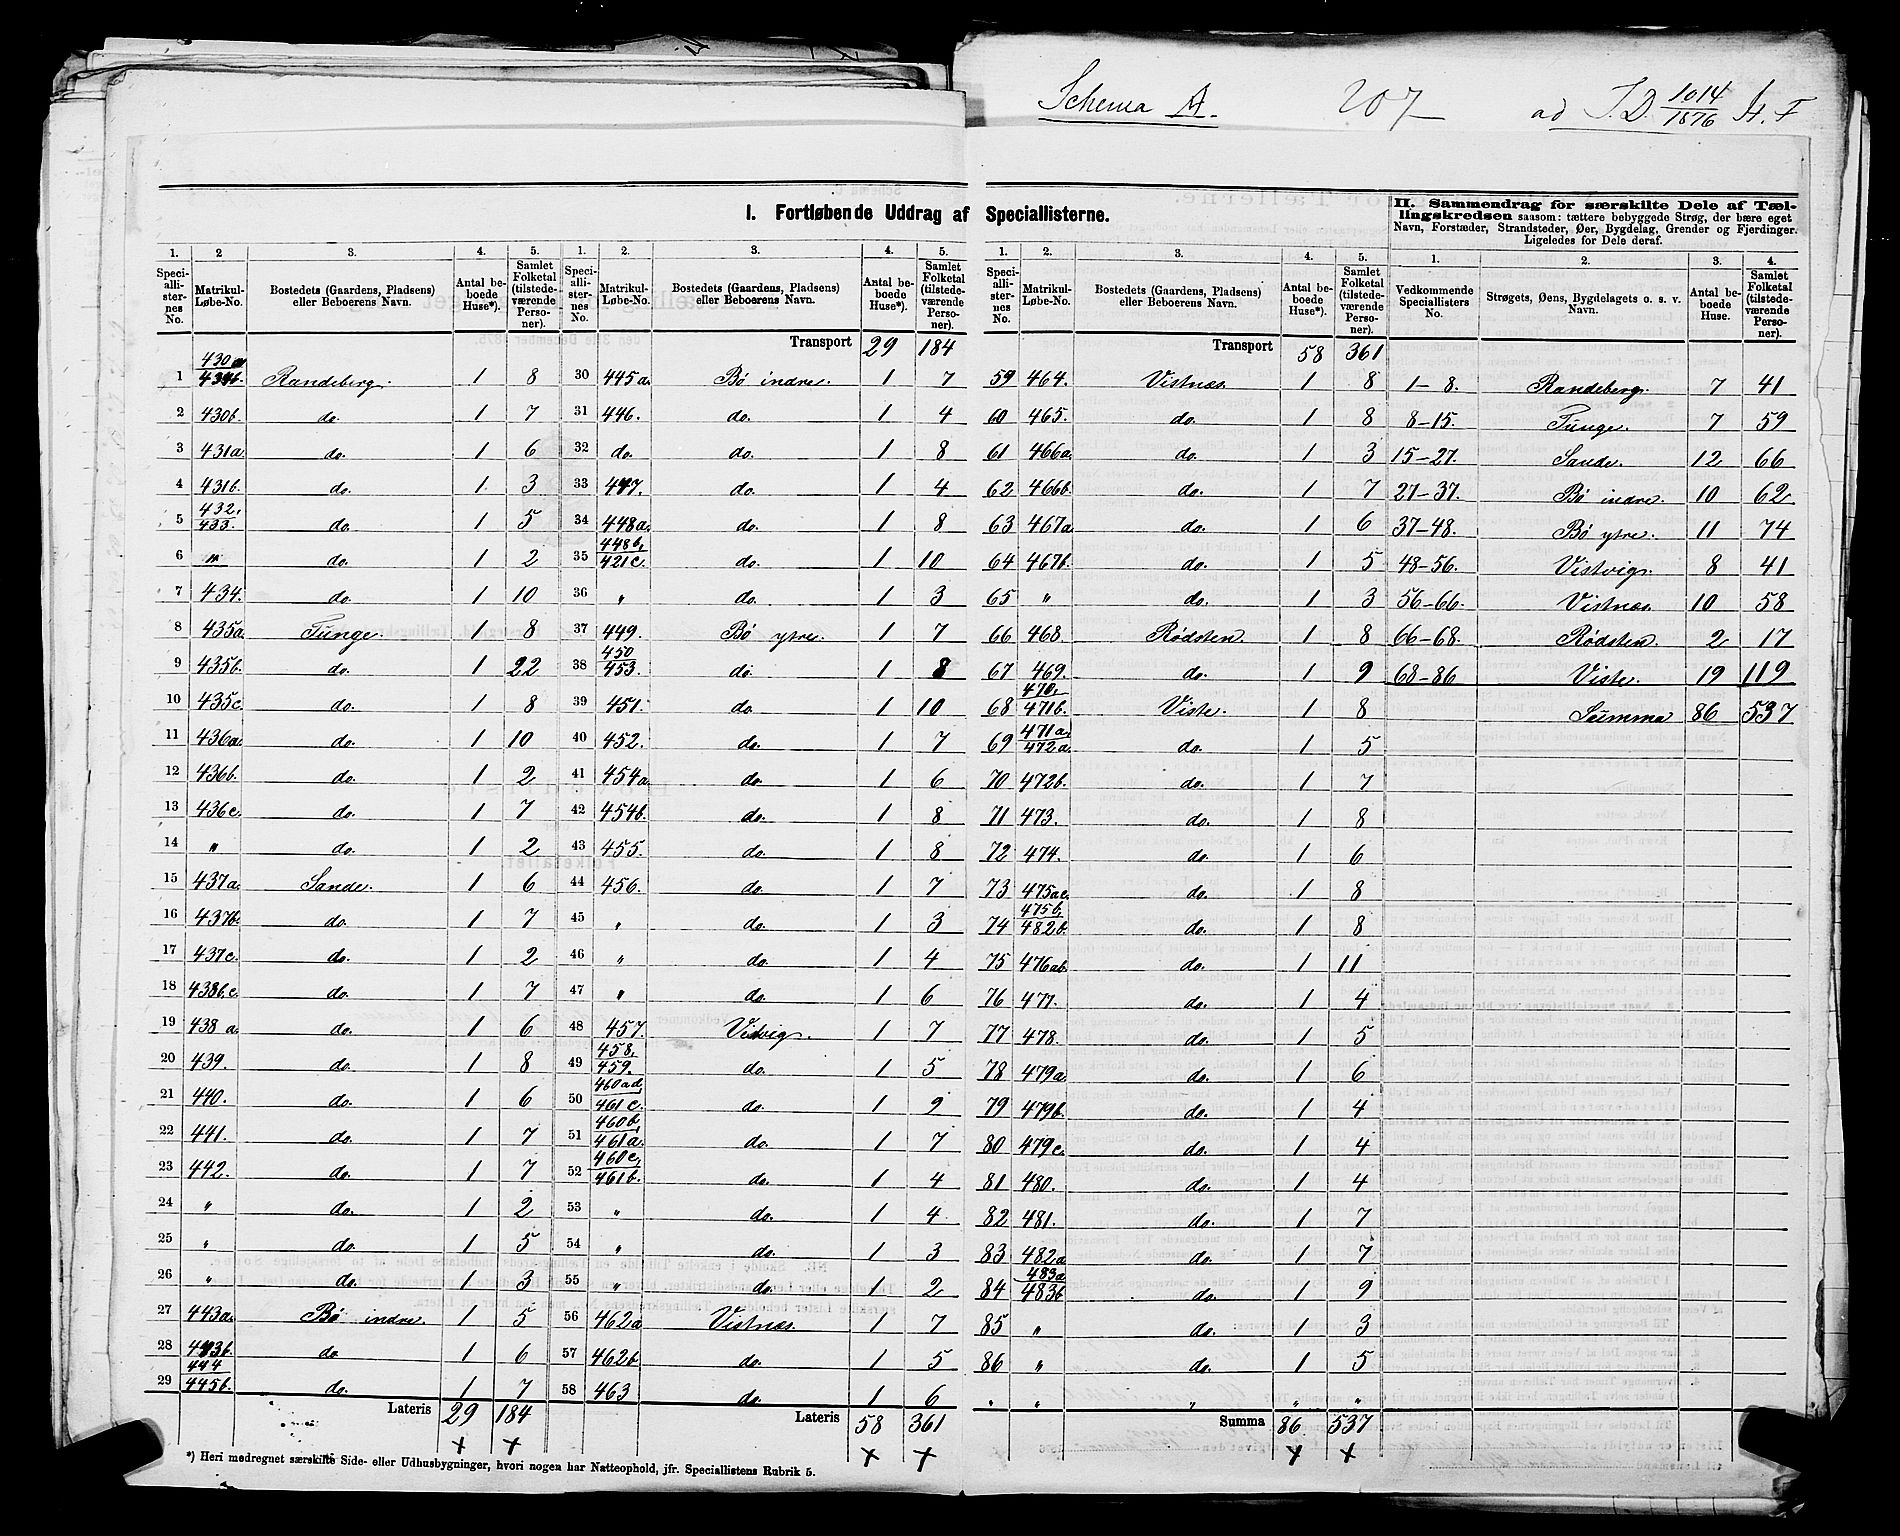 Schema A. 207 ad I.D. 1014/1876 H. F
I. Fortløbende Uddrag af Speciallisterne.
II. Sammendrag for særskilte Dele af Tællingskredsen saasom: tættere bebyggede Strøg, der bære eget
Navn, Forstæder, Strandsteder, Øer, Bygdelag, Grender og Fjerdinger.
Ligeledes for Dele deraf.
1. 2 3. 4. 5.
Speciallisternes No. Matrikul-Løbe-No. Bostedets (Gaardens, Pladsens) eller Beboerens Navn. Antal beboede Huse*). Samlet Folketal (tilstedeværende Personer).
1 430a 431b. Randeberg. 1 8
2 430b. do. 1 7
3 431a. do. 1 6
4 431b. do. 1 3
5 432, 433. do. 1 5
6 " do. 1 2
7 434. do. 1 10
8 435a. Tunge. 1 8
9 435b. do. 1 22
10 435c. do. 1 8
11 436a. do. 1 10
12 436b. do. 1 2
13 436c. do. 1 7
14 " do. 1 2
15 437a. Sande. 1 6
16 437b. do. 1 7
17 437c. do. 1 2
18 438b.c. do. 1 7
19 438 a. do. 1 6
20 439. do. 1 8
21 440. do. 1 6
22 441. do. 1 7
23 442. do. 1 7
24 " do. 1 2
25 " do. 1 5
26 " do. 1 3
27 443a. Bø indre. 1 5
28 443b. do. 1 6
29 444 445b. do. 1 7
Lateris 29 184
*) Heri medregnet særskilte Side- eller Udhusbygninger, hvori nogen har Natteophold, jfr. Speciallistens Rubrik 5.
1. 2. 3. 4. 5.
Speciallisternes No. Matrikul-Løbe-No. Bostedets (Gaardens, Pladsens) eller Beboerens Navn. Antal beboede Huse*). Samlet Folketal (tilstedeværende Personer).
Transport 29 184
30 445a. Bø indre. 1 7
31 446. do. 1 4
32 do. do. 1 8
33 447. do. 1 4
34 448a. do. 1 8
35 448b, 421c. do. 1 10
36 " do. 1 3
37 449. Bø ytre. 1 7
38 450 453. do. 1 8
39 451. do. 1 10
40 452. do. 1 7
41 454a. do. 1 6
42 454b. do. 1 8
43 455. do. 1 8
44 456. do. 1 7
45 " do. 1 3
46 " do. 1 4
47 " do. 1 6
48 457. Vistvig. 1 7
49 458, 459. do. 1 5
50 460ad, 461c. do. 1 9
51 460b, 461a. do. 1 7
52 460c, 461b. do. 1 4
53 " do. 1 4
54 " do. 1 3
55 " do. 1 2
56 462a Vistnæs. 1 7
57 462b do. 1 5
58 463 do. 1 6
Lateris 58 361
1. 2. 3. 4. 5.
Speciallisternes No. Matrikul-Løbe-No. Bostedets (Gaardens, Pladsens) eller Beboerens Navn. Antal beboede Huse*). Samlet Folketal (tilstedeværende Personer).
Transport 58 361
59 464. Vistnæs. 1 8
60 465. do. 1 8
61 466a. do. 1 3
62 466b. do. 1 7
63 467a do. 1 6
64 467b. do. 1 5
65 " do. 1 3
66 468 Rødsten. 1 8
67 469. do. 1 9
68 470, 471b. Viste. 1 8
69 471a, 472a. do. 1 5
70 472b. do. 1 7
71 473. do. 1 8
72 474. do. 1 6
73 475ac. do. 1 8
74 475b, 482b. do. 1 8
75 476ab. do. 1 11
76 477. do. 1 4
77 478. do. 1 5
78 479a. do. 1 6
79 479b. do. 1 4
80 479c. do. 1 4
81 480. do. 1 4
82 481. do. 1 7
83 482a do. 1 7
84 483a 483b do. 1 9
85 " do. 1 3
86 " do. 1 5
" " " " "
Summa 86. 537
1. 2. 3. 4.
Vedkommende Speciallisters No. Strøgets, Øens, Bygdelagets o. s. v. Navn. Antal beboede Huse. Samlet Folketal (tilstedeværende Personer).
1-8. Randeberg. 7 41
8-15. Tunge. 7 59
15-27. Sande. 12 66
27-37. Bø indre. 10 62
37-48. Bø ytre. 11 74
48-56. Vistvig. 8 41
56-66. Vistnæs. 10 58
66-68. Rødsten. 2 17
68-86 Viste. 19 119
Summa 86 537